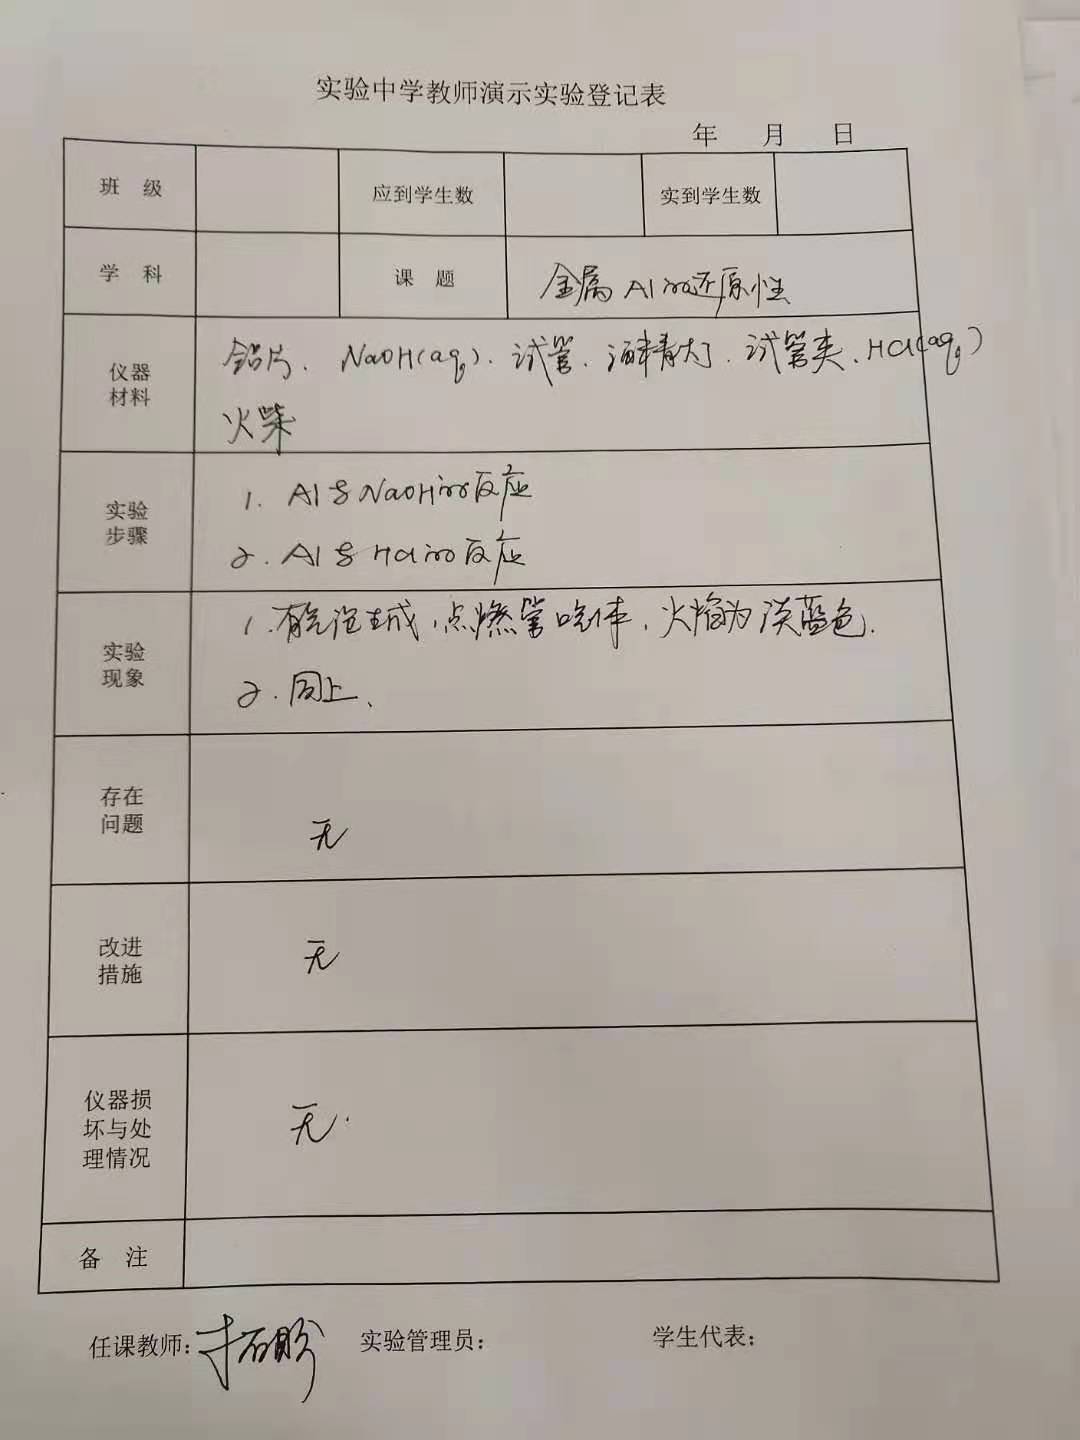 实验中学教师演示实验登记表
年 月 日
班 级 应到学生数 实到学生数
学 科 课 题 金属Al的还原性
仪器材料 铝片、NaOH(aq)、试管、酒精灯、试管夹、HCl(aq)
火柴
实验步骤 1. Al与NaOH的反应
2. Al与HCl的反应
实验现象 1. 有气泡生成,点燃管口气体,火焰为淡蓝色.
2. 同上、
存在问题 无
改进措施 无
仪器损坏与处理情况 无.
备 注
任课教师: 实验管理员: 学生代表: